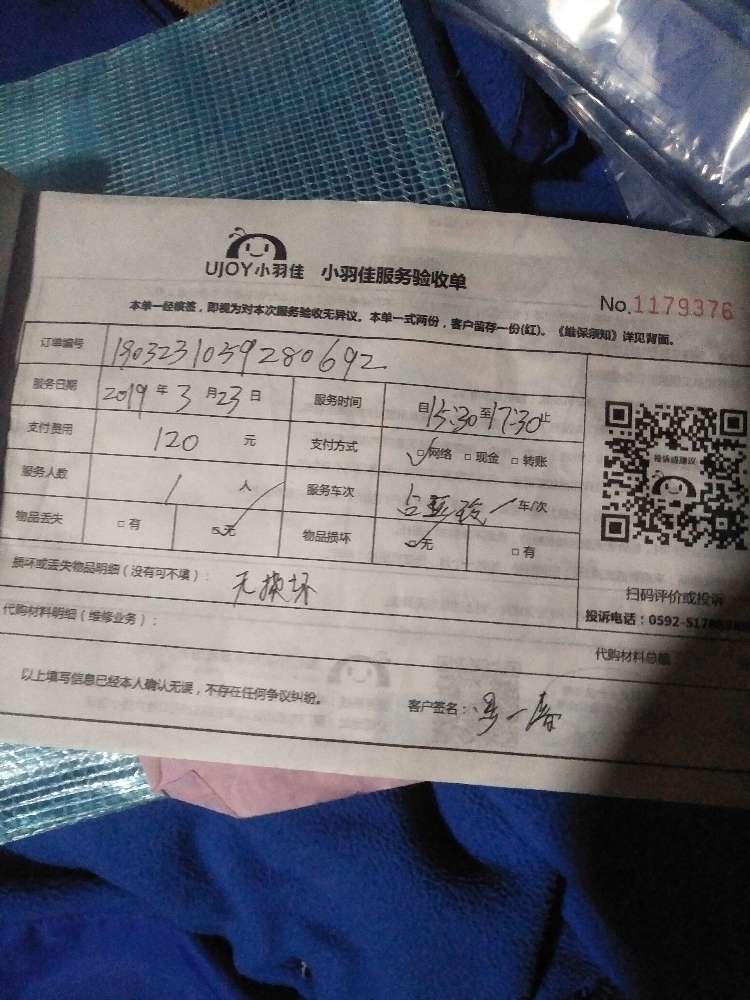 UJOY小羽佳 小羽佳服务验收单
No.1179376
本单一经核签，即视为对本次服务验收无异议。本单一式两份，客户留存一份(红)。《维保须知》详见背面。
订单编号 1903231039280692
服务日期 2019年3月23日 服务时间 自15:30至17:30止
支付费用 120 元 支付方式 □网络 □现金 □转账
服务人数 1 人 服务车次 车/次
物品丢失 □有 □无 物品损坏 □无 □有
投诉或建议
扫码评价或投诉
投诉电话：0592-5178
损坏或丢失物品明细（没有可不填）： 无损坏
代购材料明细（维修业务）：
代购材料总额
以上填写信息已经本人确认无误，不存在任何争议纠纷。 客户签名：